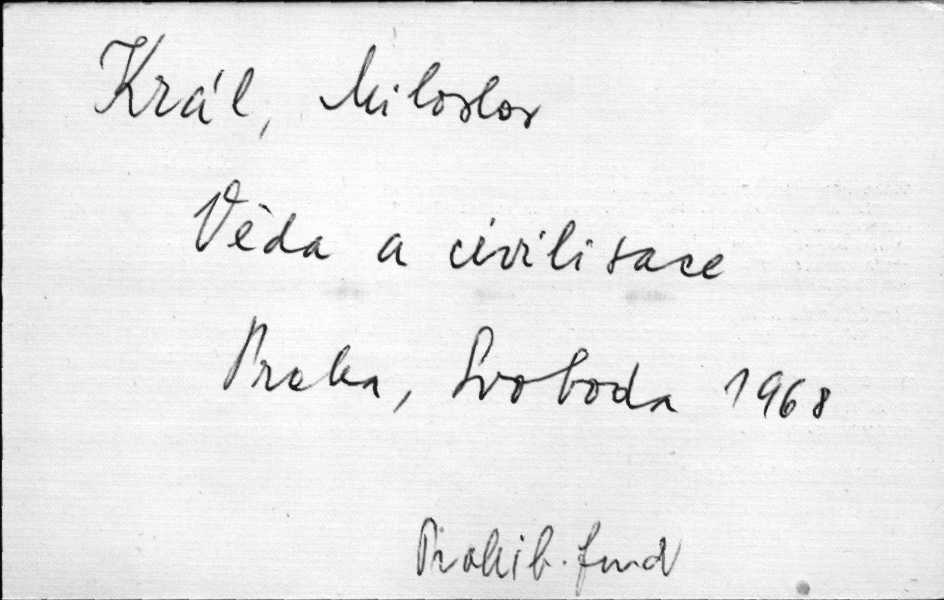 Král, Miloslav
Věda a civilisace
Praha, Svoboda 1968
Prohib. fond